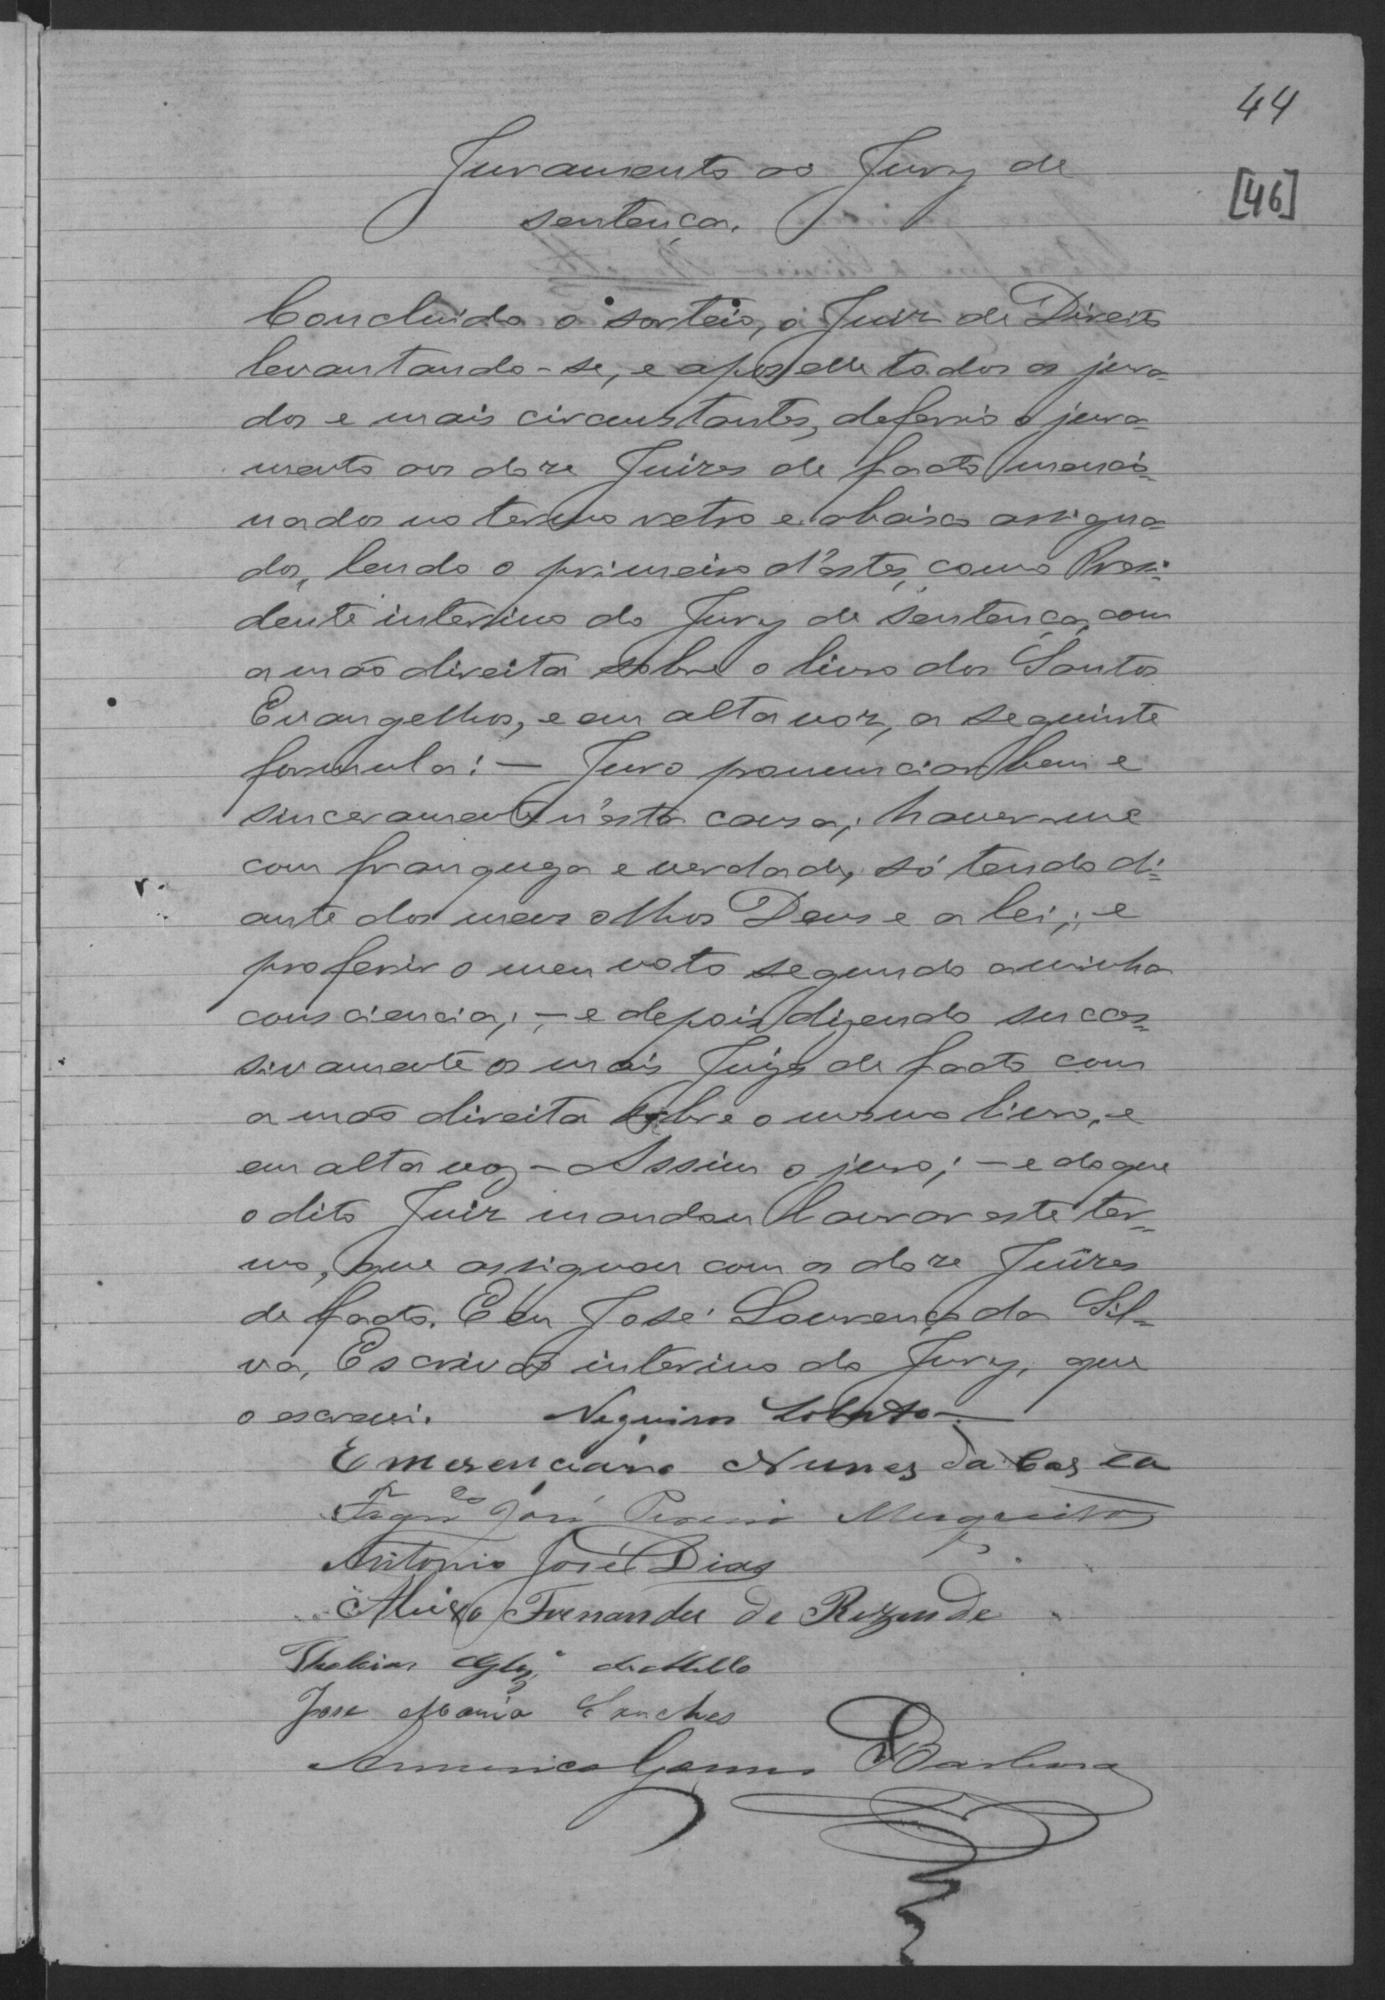 44
[46]
Juramento ao Jury de
sentença.
Concluido o sorteio, o Juiz de Direito
levantando-se, e apos elle todos os jura=
dos e mais circunstantes, deferio o jura=
mento aos doze Juizes de facto mencio=
nados no termo retro e abaixo assigna=
dos, lendo o primeiro d'estes, como Presi=
dente interino do Jury de sentença, com
a mão direita sobre o livro dos Santos
Evangelhos, e em alta voz, a seguinte
formula: — Juro pronunciar bem e
sinceramente n'esta causa; haver-me
com franqueza e verdade, só tendo di=
ante dos meus olhos Deus e a lei; e
proferir o meu voto segundo a minha
consciencia; — e depois dizendo succes=
sivamente os mais Juizes de facto com
a mão direita sobre o mesmo livro, e
em alta voz — Assim o juro; — e do que
o dito Juiz mandou lavrar este ter=
mo, que assignou com os doze Juizes
de facto. E eu José Lourenço da Sil=
va, Escrivão interino do Jury, que
o escrevi. Lobato
Emerenciano Nunes da Costa
José Pereira Mesquita
Antonio José Dias
Aluizo Fernandes de Rezende
de Mello
Jose Maria Sanches
Americo Gomes Barbosa